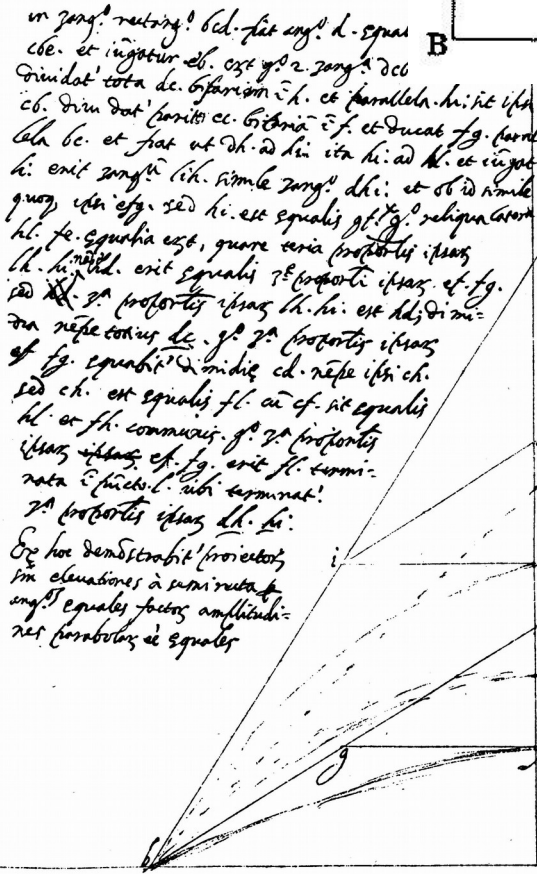 in triang.º rectang.º bcd. fiat ang.º d. equa
cbe. et iūgatur eb. ergº 2. triang. dcb
B
dividat' tota dc. bifariam ī h. et parallela. hi: sit ipsi
cb. dividat' pariter ec. bifariā ī f. et ducat fg. paral
lela bc. et fiat ut dh. ad hi: ita hi: ad hl. et iūgat
li: erit triang.ū lih. simile triang.º dhi: et ob id simile
quoq ipsi efg. sed hi. est equalis gf. gº. reliqua latera
hl. fe. equalia erūt, quare tertia proportˡis ipsar
lh. hi. nēpe hd. erit equalis 3ᵉ proportˡi ipsar. ef. fg.
sed 3ª proportˡis ipsar lh. hi. est hd; dimi=
dia nēpe totius dc. gº 3ª proportˡis ipsar
ef fg. equabit' dimidie cd. nēpe ipsi ch.
sed ch. est equalis fl. cū cf. sit equalis
hl et fh. communis. gº 3ª proportˡis
ipsar ef. fg. erit fl. termi=
nata ī pūcto. l. ubi terminat'
3ª proportˡis ipsar dh. hi:
Ex hoc demōstrabit' proiector
sm elevationes à semirecta
ang.ᵒˢ equales factor amplitudi=
nes parabolar eē equales
i
g
b